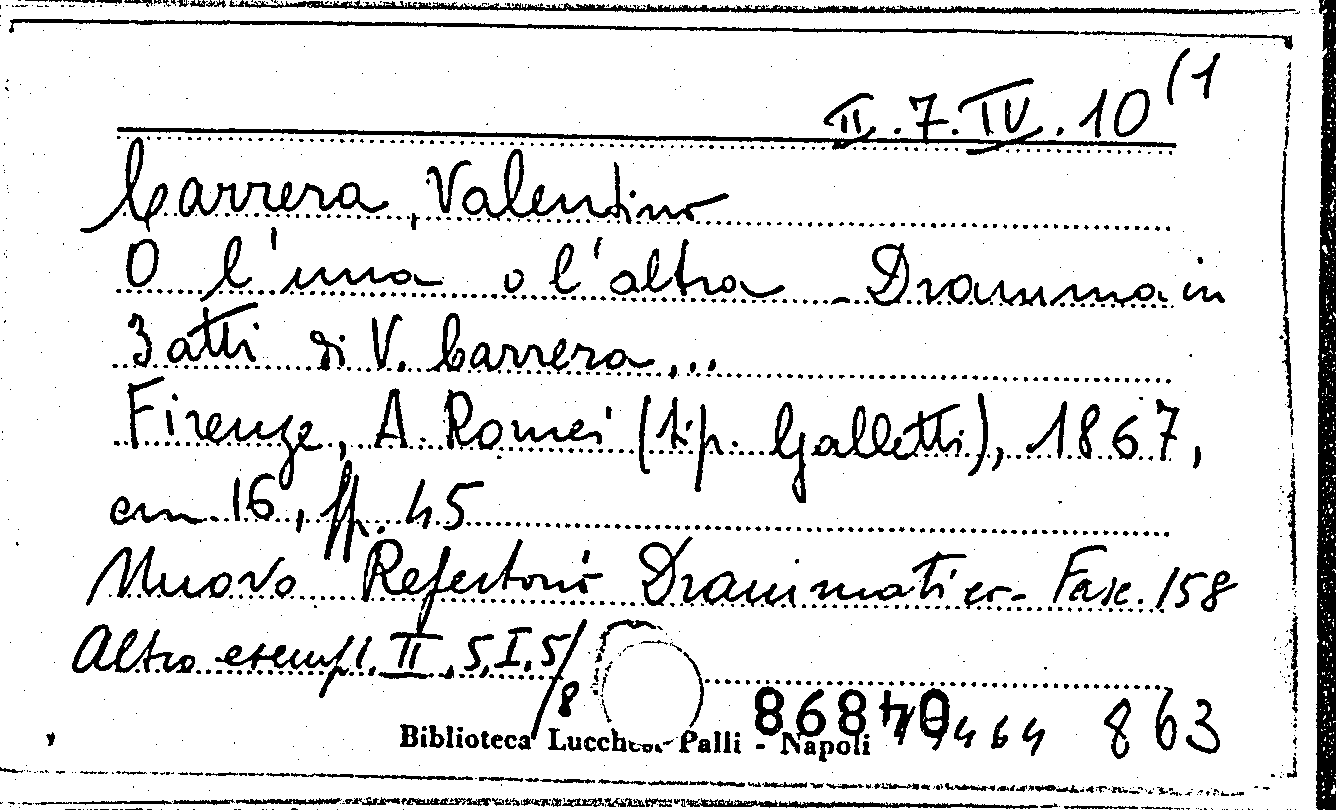 II.7.IV.10(1
Carrera, Valentino
O l'una o l'altra - Dramma in
3 atti di V. Carrera...
Firenze, A. Romei (tip. Galletti), 1867,
in 16, pp. 45
Nuovo Repertorio Drammatico - Fasc. 158
Altro esempl. II, 5, I, 5/8
863
Biblioteca Lucchesi Palli - Napoli